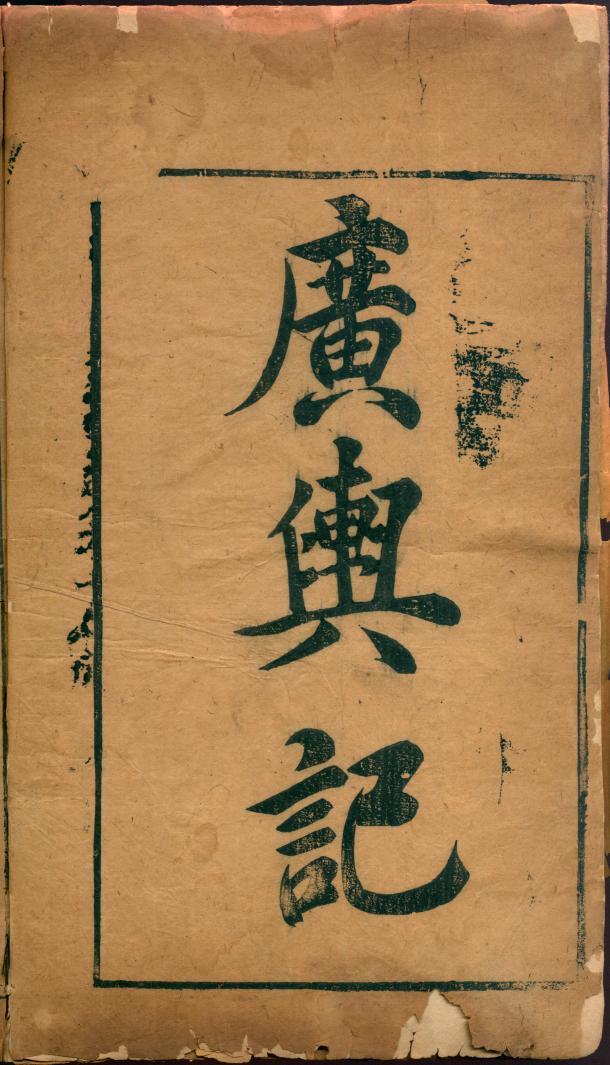 廣輿記